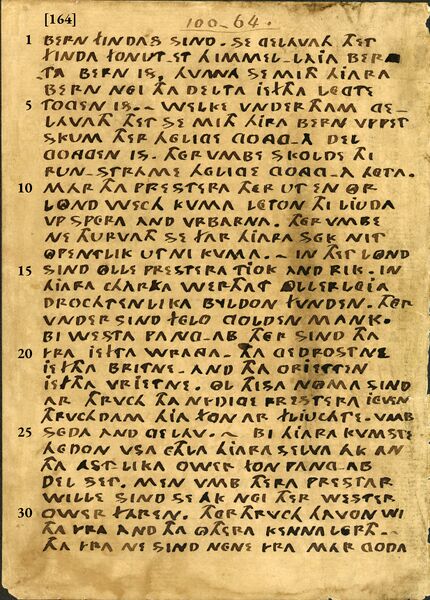 [164]
100_64.
1 BERN FINDAS SIND. SE GELAVATH THET
FINDA FON UT.ET HIMMEL_LAIA BERA
TA BERN IS, HWANA SE MITH HIARA
BERN NEI THA DELTA IEFTHA LEGTE
5 TOGEN IS.~ WELKE VNDER THAM GE_
LAVATH THET SE MITH HIRA BERN VPPET
SKUM THER HELIGE GONG_A DEL
GONGEN IS. THERVMBE SKOLDE THI
RUN_STRAME HELIGE GONG_A HETA.
10 MAR THA PRESTERA THER UT EN OR
LOND WECH KVMA LETON THI LIUDA
VPSPERA AND VRBARNA. THERVMBE
NE THURVATH SE FAR HIARA SEK NIT
OPENTLIK UT NI KVMA.~ IN THET LOND
15 SIND OLLE PRESTERA TIOK AND RIK. IN
HIARA CHARKA WERTHAT OLLERLEIA
DROCHTENLIKA BYLDON FUNDEN. THER
VNDER SIND FELO GOLDEN MANK.
BI WESTA PANG_AB THER SIND THA
20 YRA IEFTHA WRANGA. THA GEDROSTNE
IEFTHA BRITNE. AND THA ORIETTEN
IEFTHA VRIETNE. OL THISA NOMA SIND
AR THRVCH THA NYDIGE PRESTERA IEVEN
THRVCHDAM HIA FON AR FLIUCHTE. VMB
25 SEDA AND GELAV.~ BI HIARA KVMSTE
HEDON VSA ETHLA HIARA SELVA AK AN
THA ASTLIKA OWER FON PANG_AB
DEL SET. MEN VMB THERA PRESTAR
WILLE SIND SE AK NEI THER WESTER
30 OWER FAREN. THERTHRVCH HAVON WI
THA YRA AND THA OTHERA KENNA LERTH.~
THA YRA NE SIND NENE YRA MAR GODA